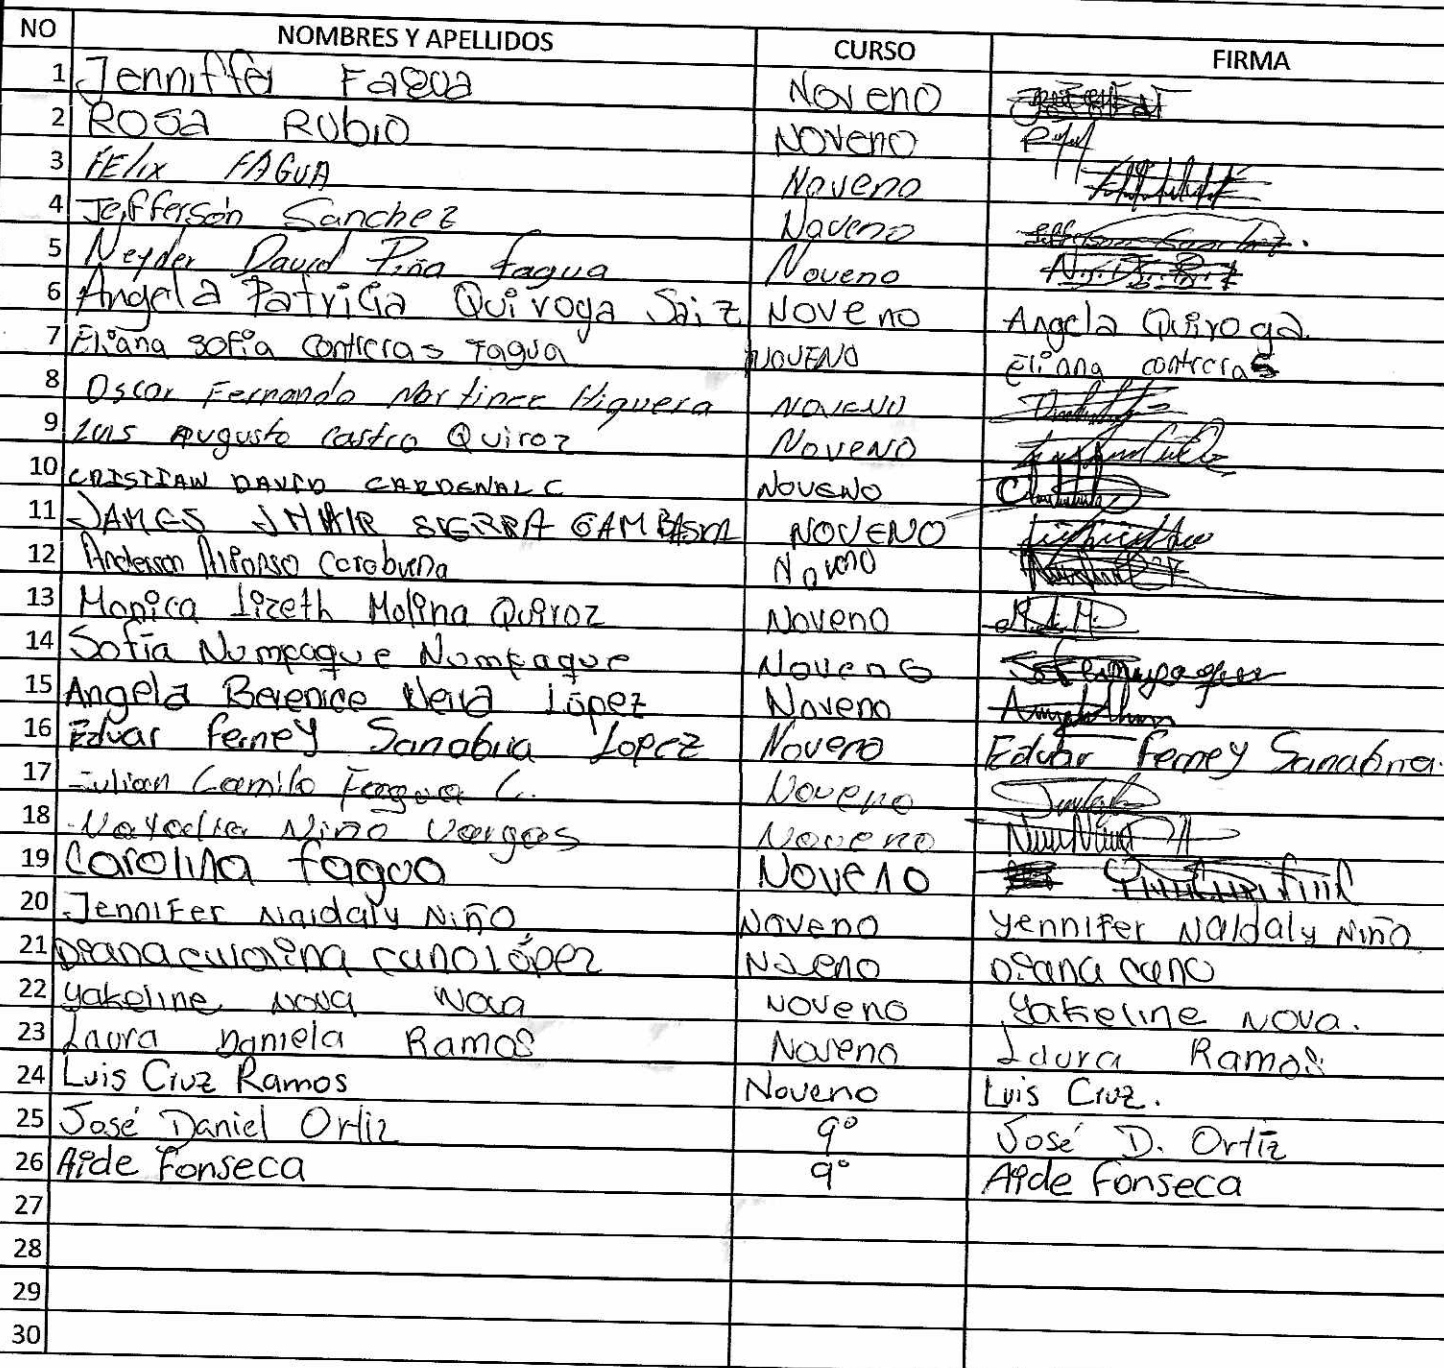 NO NOMBRES Y APELLIDOS CURSO FIRMA
1 Jenniffer Fagua Noveno
2 Rosa Rubio Noveno
3 FElix FAGUA Noveno
4 Jefferson Sanchez Noveno Jefferson Sanchez.
5 Neyder David Piña fagua Noveno
6 Angela Patricia Quiroga Saiz Noveno Angela Quiroga.
7 Eliana Sofia Contreras Fagua NOVENO Eliana contreras
8 Oscar Fernando Martinez Higuera NOVENO
9 Luis Augusto Castro Quiroz NOVENO
10 CRISTIAN DAVID CARDENAL C NOVENO
11 JAMES JHAIR SIERRA GAMBASICA NOVENO
12 Anderson Alfonso Corobuena Noveno
13 Monica lizeth Molina Quiroz Noveno
14 Sofía Numpaque Numpaque Noveno
15 Angela Berenice Neva López Noveno
16 Eduar ferney Sanabria Lopez Noveno Eduar ferney Sanabria.
17 Julian Camilo Fagua C. Noveno
18 Nayodira Niño Vargas Noveno
19 Carolina fagua Noveno
20 Jennifer Naidaly Niño Noveno Yennifer Naidaly Niño
21 Diana curolina cano lópez Noveno Diana cano
22 Yakeline Nova Nova Noveno Yakeline Nova.
23 Laura Daniela Ramos Noveno Laura Ramos
24 Luis Cruz Ramos Noveno Luis Cruz.
25 José Daniel Ortiz 9° José D. Ortiz
26 Aide fonseca 9° Aide fonseca
27
28
29
30